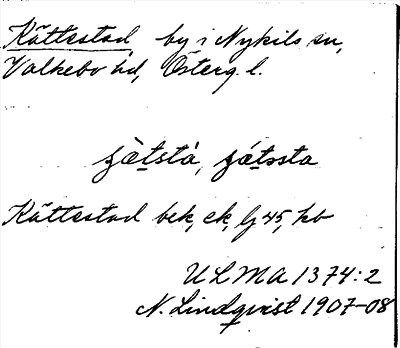 Kättestad by i Nykils sn,
Valkebo hd, Österg. l.
Kättestad bek, ek, lj 45, hb
ULMA 1374:2
N. Lindqvist 1907-08